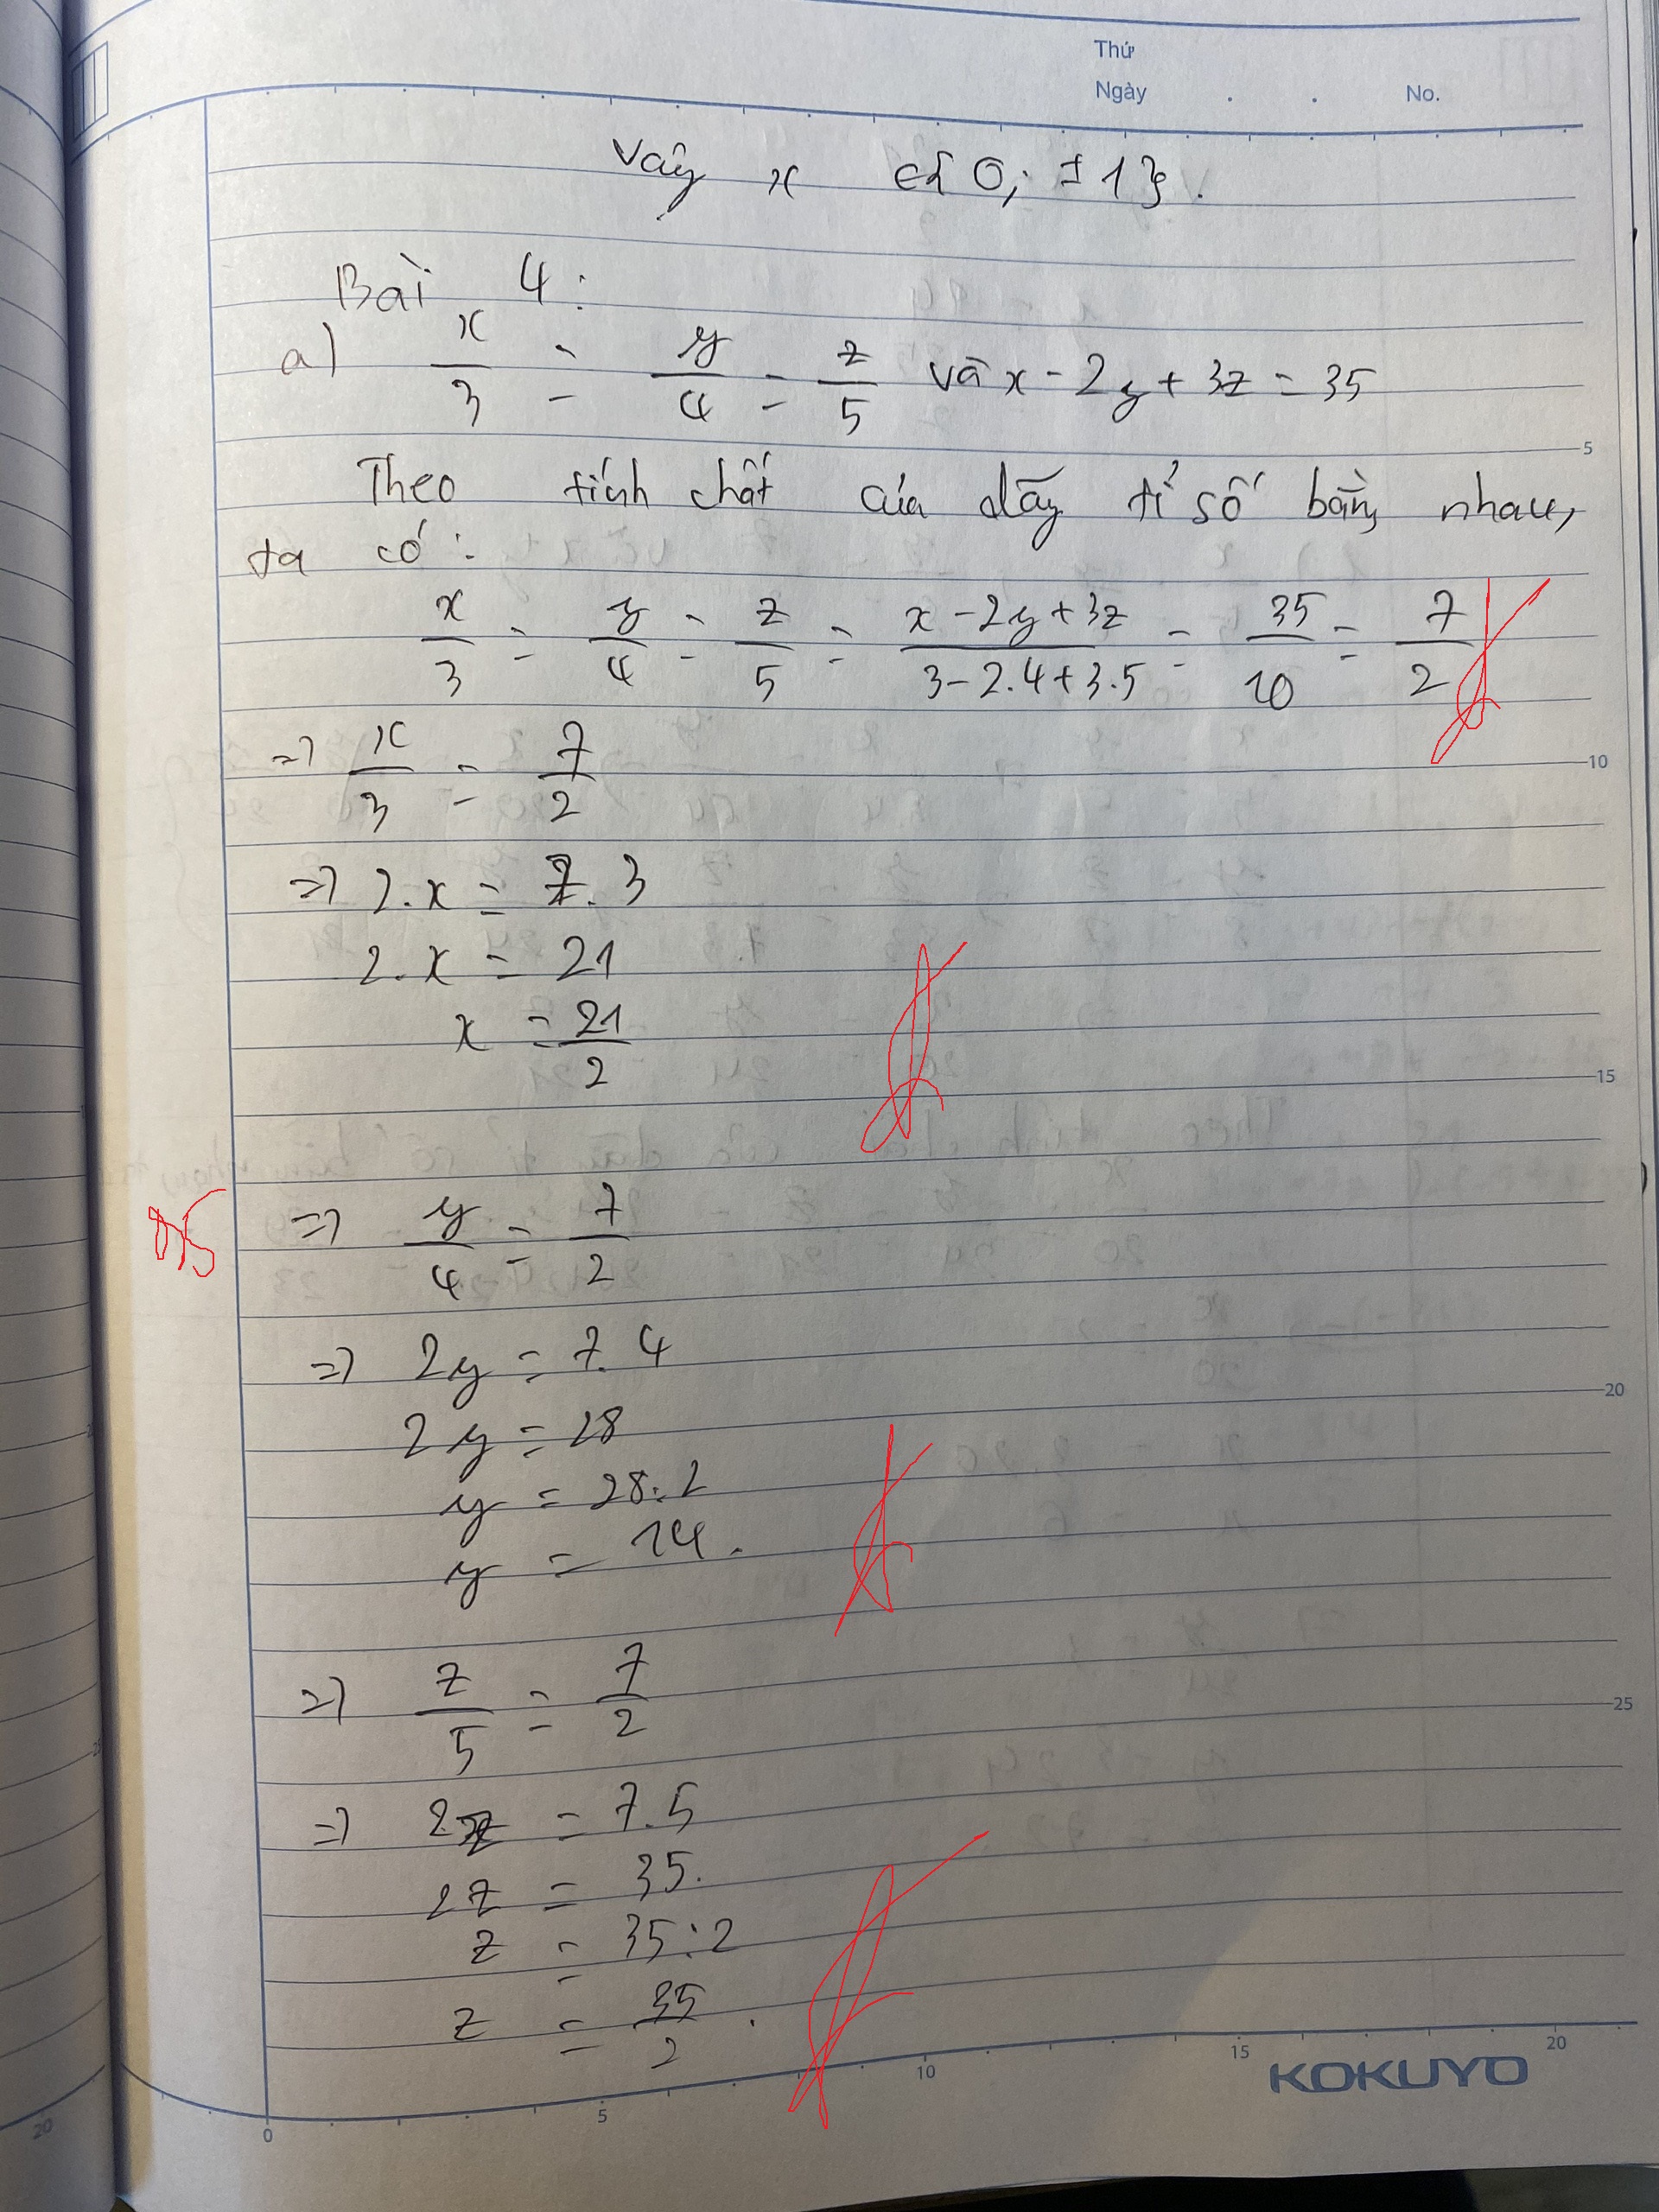 Thứ
Ngày . . No.
Vậy x ∈ { 0; ±1 }.
Bài 4:
a) x/3 = y/4 = z/5 và x - 2y + 3z = 35
Theo tính chất của dãy tỉ số bằng nhau,
ta có:
x/3 = y/4 = z/5 = (x - 2y + 3z)/(3 - 2.4 + 3.5) = 35/10 = 7/2
=> x/3 = 7/2
=> 2.x = 7.3
2.x = 21
x = 21/2
=> y/4 = 7/2
=> 2y = 7.4
2y = 28
y = 28:2
y = 14.
=> z/5 = 7/2
=> 2z = 7.5
2z = 35.
z = 35:2
z = 35/2.
5
10
15
20
25
0 5 10 15 20
KOKUYO